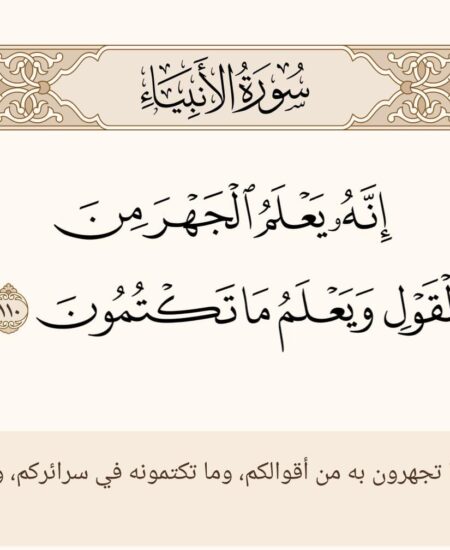 سُورَةُ الأَنْبِيَاءِ
إِنَّهُۥ يَعْلَمُ ٱلْجَهْرَ مِنَ
ٱلْقَوْلِ وَيَعْلَمُ مَا تَكْتُمُونَ ١١٠
تجهرون به من أقوالكم، وما تكتمونه في سرائركم، و